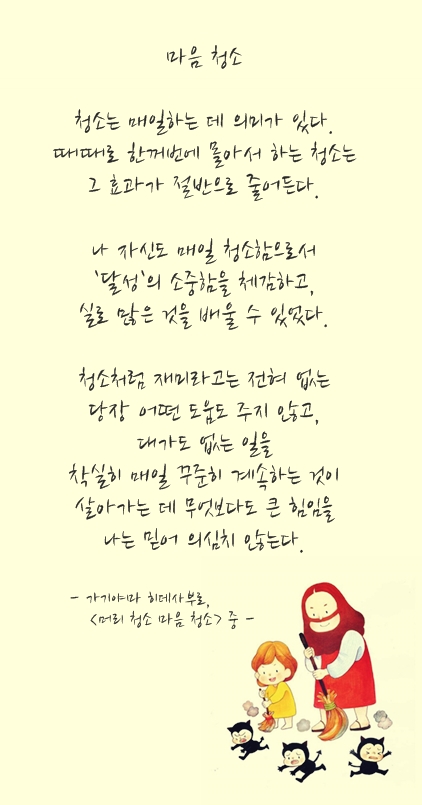 마음 청소
청소는 매일하는 데 의미가 있다.
때때로 한꺼번에 몰아서 하는 청소는
그 효과가 절반으로 줄어든다.
나 자신도 매일 청소함으로서
'달성'의 소중함을 체감하고,
실로 많은 것을 배울 수 있었다.
청소처럼 재미라고는 전혀 없는
당장 어떤 도움도 주지 않고,
대가도 없는 일을
착실히 매일 꾸준히 계속하는 것이
살아가는 데 무엇보다도 큰 힘임을
나는 믿어 의심치 않는다.
- 가기야마 히데사부로,
<머리 청소 마음 청소> 중 -